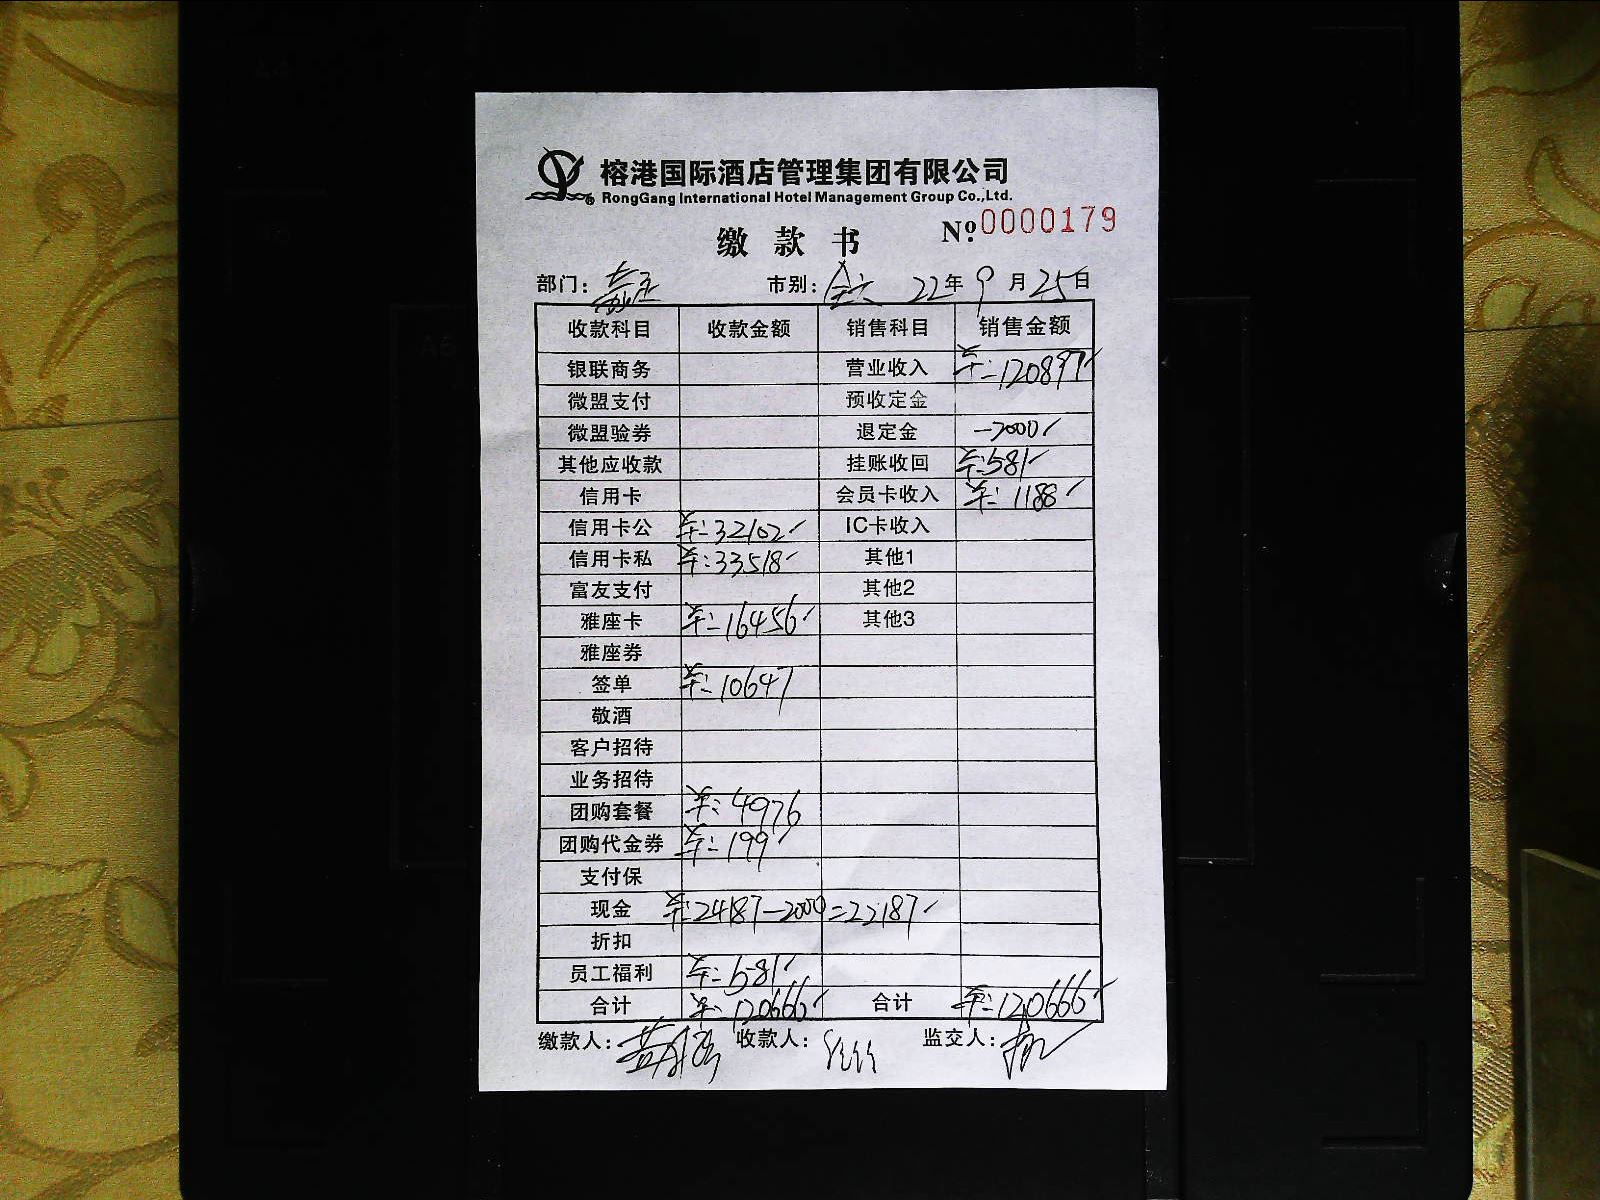 榕港国际酒店管理集团有限公司
RongGang International Hotel Management Group Co.,Ltd.
缴款书 Nº.0000179
部门: 市别: 22年9月25日
收款科目 收款金额 销售科目 销售金额
银联商务 营业收入 ¥:120897
微盟支付 预收定金
微盟验券 退定金 -2000
其他应收款 挂账收回 ¥:581
信用卡 会员卡收入 ¥:1188
信用卡公 ¥:32102 IC卡收入
信用卡私 ¥:33518 其他1
富友支付 其他2
雅座卡 ¥:16456 其他3
雅座券
签单 ¥:10647
敬酒
客户招待
业务招待
团购套餐 ¥:4976
团购代金券 ¥:199
支付保
现金 ¥:24187-2000=22187
折扣
员工福利 ¥:581
合计 ¥:120666 合计 ¥:120666
缴款人: 收款人: 监交人: